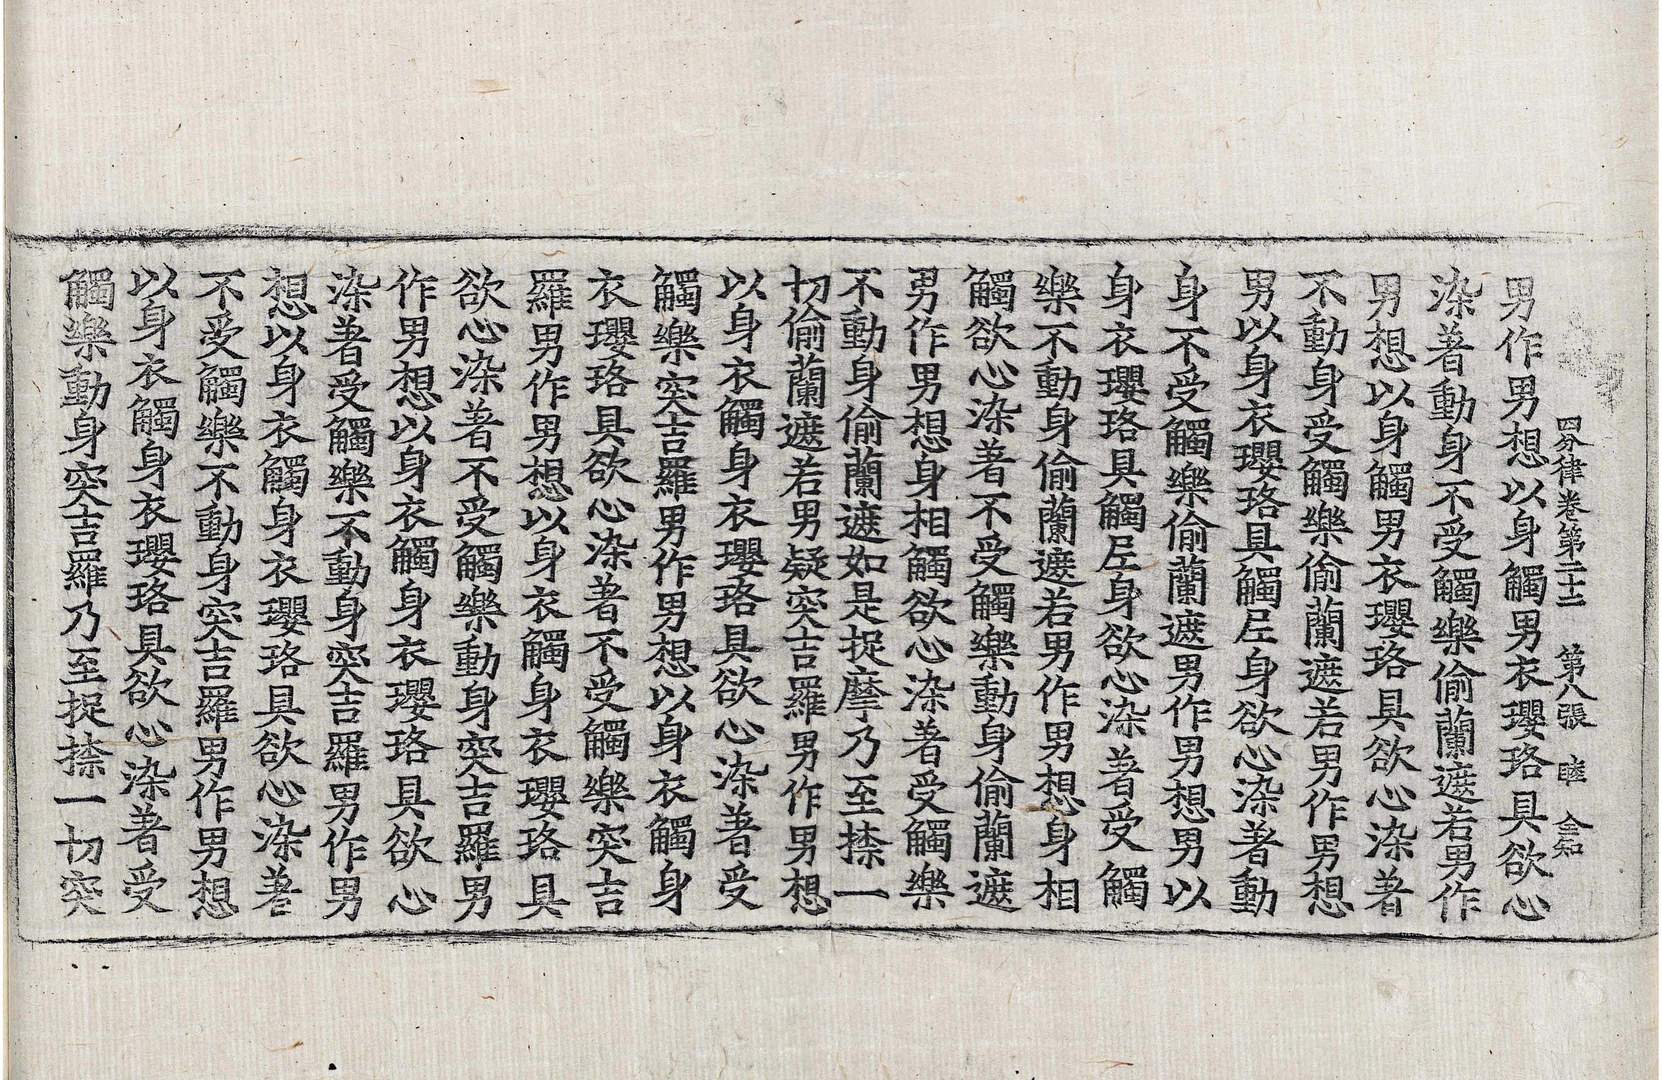 四分律卷第二十二　第八張　睦　仝知
男作男想以身觸男衣瓔珞具欲心
染著動身不受觸樂偷蘭遮若男作
男想以身觸男衣瓔珞具欲心染著
不動身受觸樂偷蘭遮若男作男想
男以身衣瓔珞具觸𡰱身欲心染著動
身不受觸樂偷蘭遮男作男想男以
身衣瓔珞具觸𡰱身欲心染著受觸
樂不動身偷蘭遮若男作男想身相
觸欲心染著不受觸樂動身偷蘭遮
男作男想身相觸欲心染著受觸樂
不動身偷蘭遮如是捉摩乃至捺一
切偷蘭遮若男疑突吉羅男作男想
以身衣觸身衣瓔珞具欲心染著受
觸樂突吉羅男作男想以身衣觸身
衣瓔珞具欲心染著不受觸樂突吉
羅男作男想以身衣觸身衣瓔珞具
欲心染著不受觸樂動身突吉羅男
作男想以身衣觸身衣瓔珞具欲心
染著受觸樂不動身突吉羅男作男
想以身衣觸身衣瓔珞具欲心染著
不受觸樂不動身突吉羅男作男想
以身衣觸身衣瓔珞具欲心染著受
觸樂動身突吉羅乃至捉捺一切突